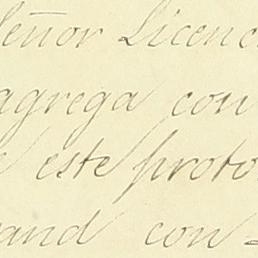 Señor Licenc
agrega con
este proto
and con=